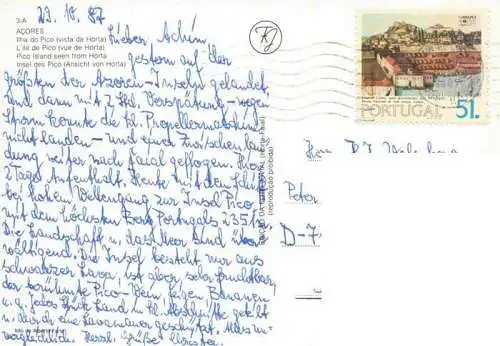 3-A
AÇORES
Ilha do Pico (vista da Horta)
L'île de Pico (vue de Horta)
Pico Island seen from Horta
Insel des Pico (Ansicht von Horta)
22.10.87
Lieber Achim,
gestern auf der
größten der Azoren-Inseln gelandet
und dann mit 2 Std. Verspätung - wegen
Sturm konnte die kl. Propellermaschine
nicht landen - und einer Zwischenlan
dung weiter nach Faial geflogen. Hier
2 Tage Aufenthalt. Heute mit dem Schiff
bei hohem Wellengang zur Insel Pico
mit dem höchsten Berg Portugals 2351 m.
Die Landschaft u. das Meer sind über
wältigend. Die Insel besteht nur aus
schwarzer Lava, ist aber sehr fruchtbar,
der berühmte Pico-Wein, Feigen, Bananen
u.a. Jedes Stück Land in kl. geteilt
u. durch eine Lavamauer geschützt. Alles un
vergleichlich. Herzl. Grüße
PORTUGAL 51.
(reprodução proibida)
Herrn
Peter
D-7